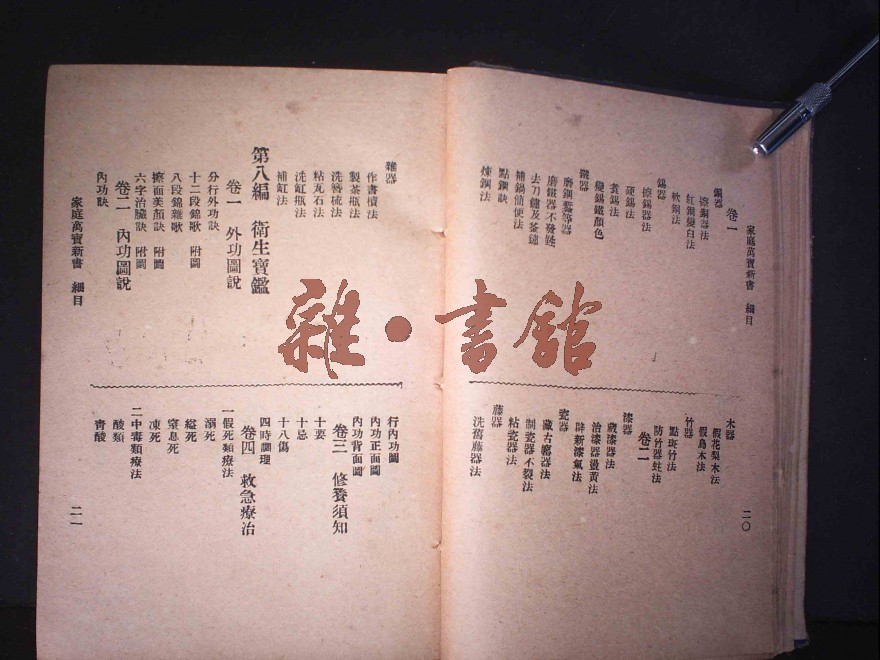 家庭萬寶新書 細目
卷一
銅器
擦銅器法
紅銅變白法
軟銅法
錫器
擦錫器法
硬錫法
煮錫法
變錫鐵顏色
鐵器
磨鋼鐵等器
磨鐵器不發銹
去刀鏽及茶鏽
補鍋簡便法
點鋼訣
煉鋼法
木器
假花梨木法
假烏木法
竹器
點斑竹法
防竹器蛀法
卷二
漆器
藏漆器法
治漆器燙黃法
辟新漆氣法
瓷器
藏古窰器法
制瓷器不裂法
粘瓷器法
藤器
洗舊藤器法
二〇
雜器
作書𥴊法
製茶瓶法
洗簪梳法
粘瓦石法
洗缸瓶法
補缸法
第八編 衛生寶鑑
卷一 外功圖說
分行外功訣
十二段錦歌 附圖
八段錦雜歌
擦面美顏訣 附圖
六字治臟訣 附圖
卷二 內功圖說
內功訣
行內功圖
內功正面圖
內功背面圖
卷三 修養須知
十要
十忌
十八傷
四時調理
卷四 救急療治
一假死類療法
溺死
縊死
窒息死
凍死
二中毒類療法
酸類
青酸
家庭萬寶新書 細目
二一
雜•書館